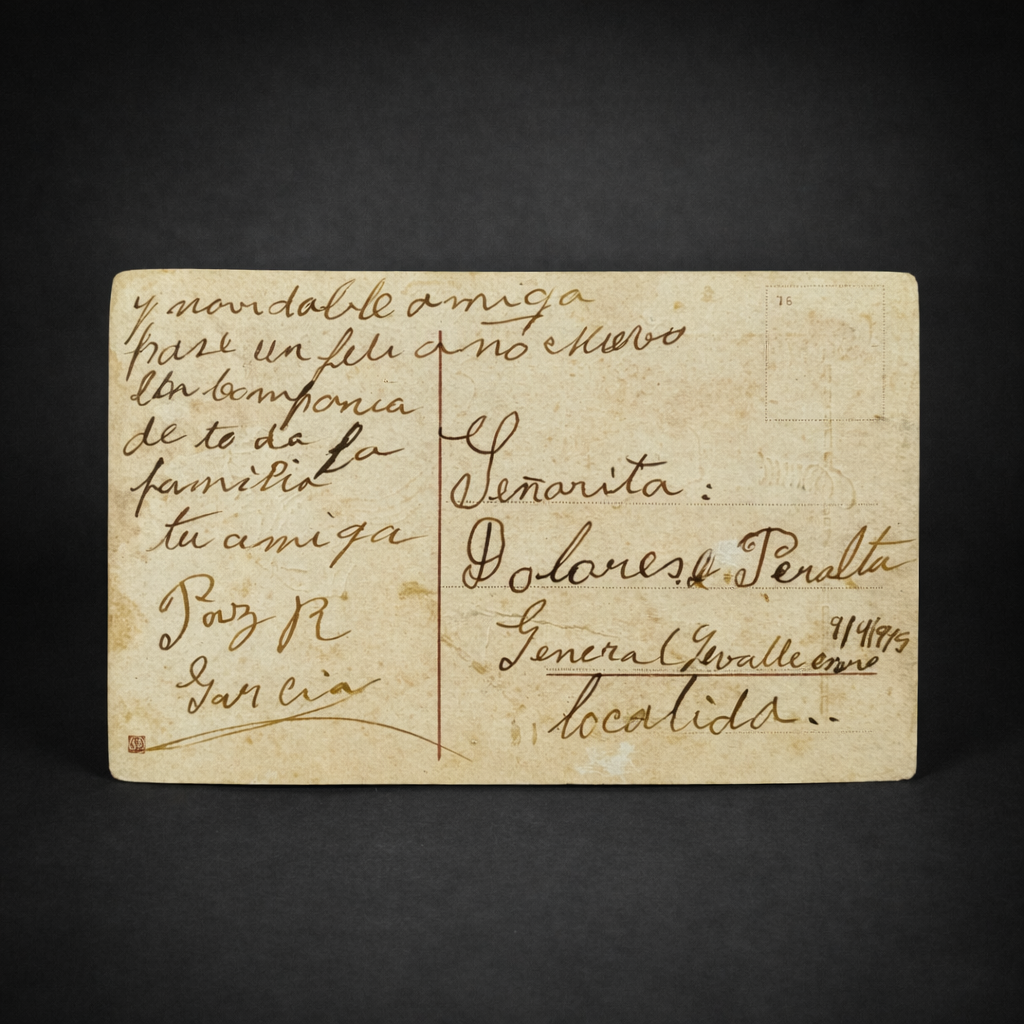 y novidable amiga
pase un feli año Nuevo
En componia
de to da la
familia
tu amiga
Paz R
Garcia
76
Señorita :
Dolores Peralta
General
enero
localida..